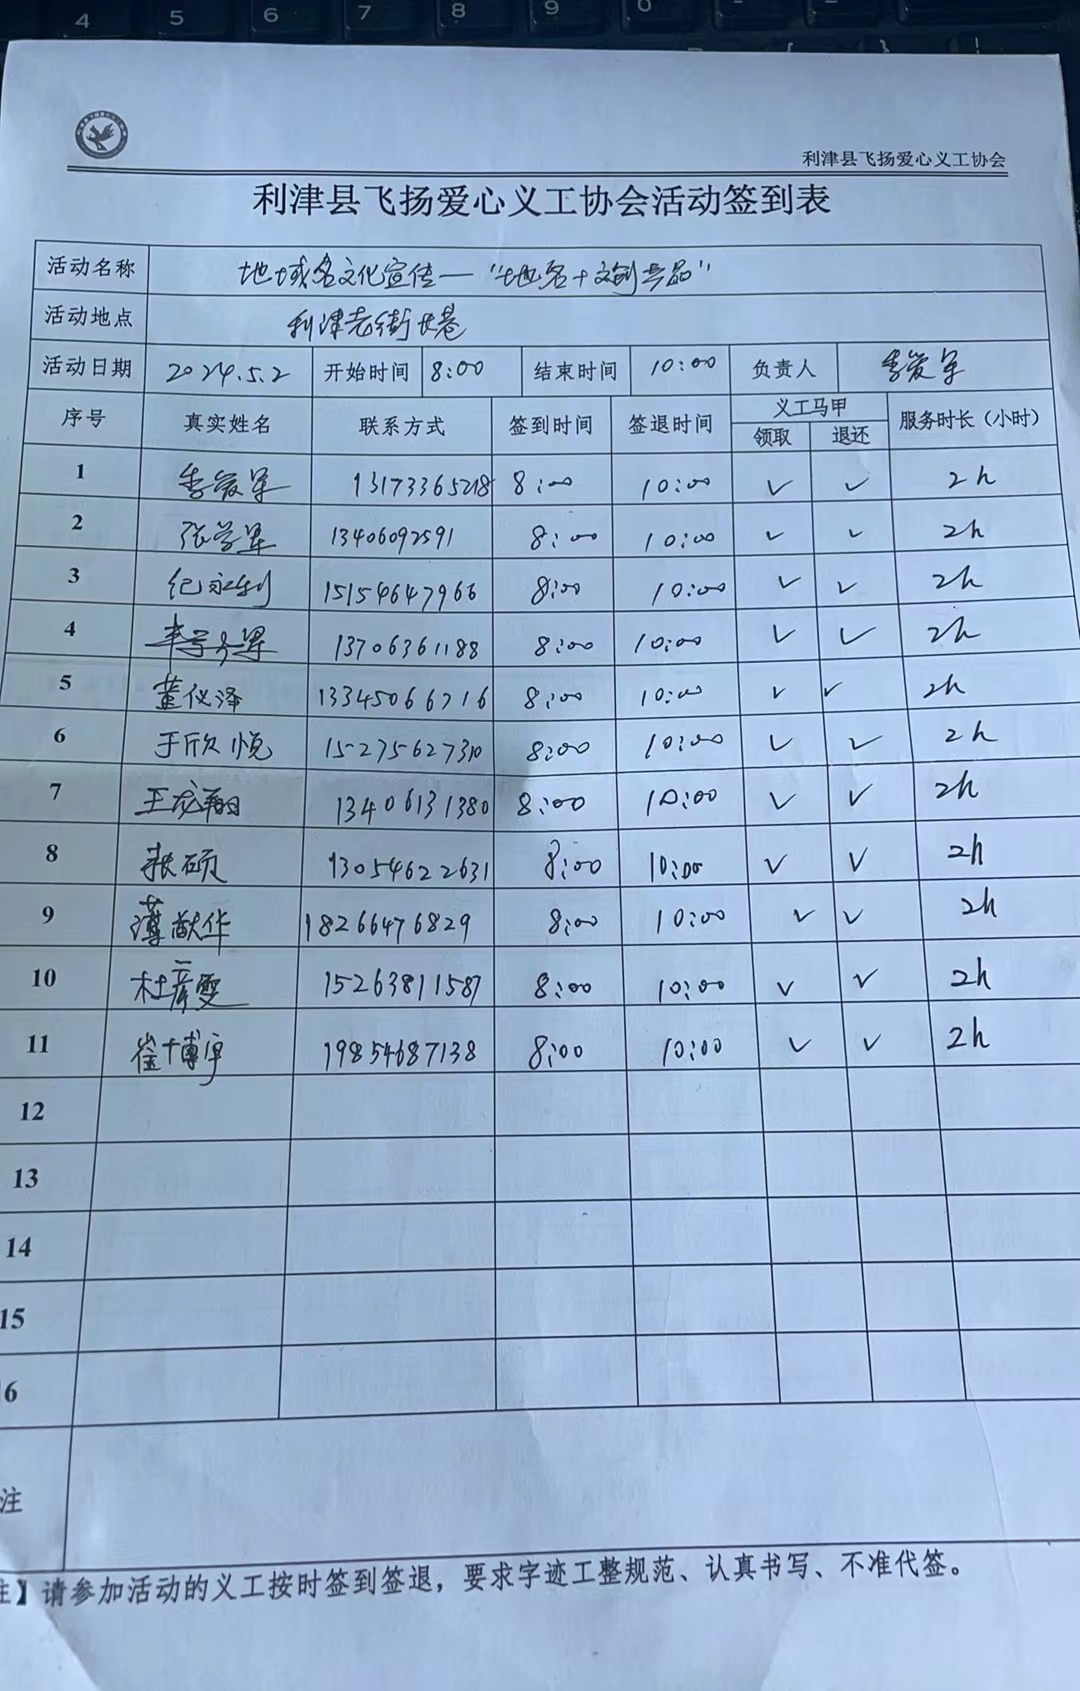 4 5 6 7 8 9 0
利津县飞扬爱心义工协会
利津县飞扬爱心义工协会活动签到表
活动名称 地域名文化宣传—"地名+文创产品"
活动地点 利津老街长巷
活动日期 2024.5.2 开始时间 8:00 结束时间 10:00 负责人 李爱军
序号 真实姓名 联系方式 签到时间 签退时间 义工马甲 服务时长（小时）
领取 退还
1 李爱军 13173365218 8:00 10:00 ✓ ✓ 2h
2 张学军 13406092591 8:00 10:00 ✓ ✓ 2h
3 纪永利 15154647966 8:00 10:00 ✓ ✓ 2h
4 13706361188 8:00 10:00 ✓ ✓ 2h
5 董仪泽 13345066716 8:00 10:00 ✓ ✓ 2h
6 于欣悦 15275627310 8:00 10:00 ✓ ✓ 2h
7 王龙翔 13406131380 8:00 10:00 ✓ ✓ 2h
8 张硕 13054622631 8:00 10:00 ✓ ✓ 2h
9 薄猷华 18266476829 8:00 10:00 ✓ ✓ 2h
10 杜彦雯 15263811587 8:00 10:00 ✓ ✓ 2h
11 崔博卓 19854687138 8:00 10:00 ✓ ✓ 2h
12
13
14
15
6
注
注】请参加活动的义工按时签到签退，要求字迹工整规范、认真书写、不准代签。